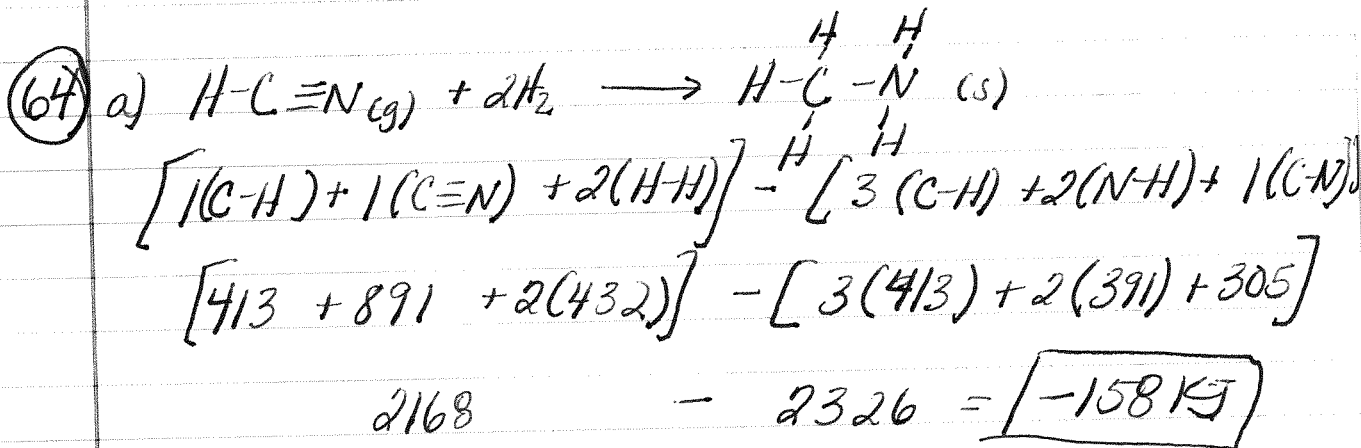 H H
64 a) H-C≡N(g) + 2H₂ → H-C-N (s)
H H
[1(C-H)+1(C≡N) +2(H-H)] - [3(C-H) +2(N-H)+ 1(C-N)]
[413 + 891 + 2(432)] - [3(413) + 2(391) + 305]
2168 - 2326 = -158 KJ